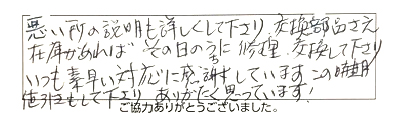 悪い所の説明も詳しくして下さり、交換部品さえ
在庫があれば その日のうちに 修理、交換して下さり
いつも素早い対応に感謝しています この時期
値引もして下さり ありがたく思っています!
ご協力ありがとうございました。